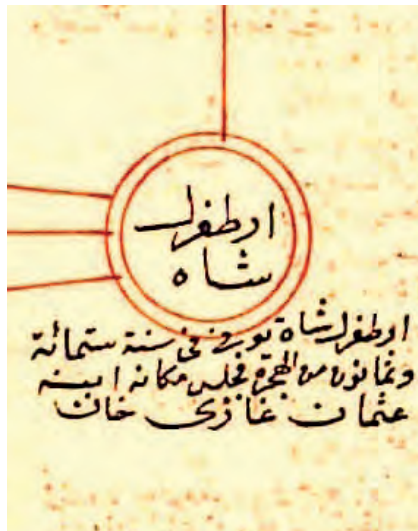 ارطغرل
شاه
ارطغرل شاه توفى فى سنة ستمائة
وثمانون من الهجرة فجلس مكانه ابنه
عثمان غازى خان